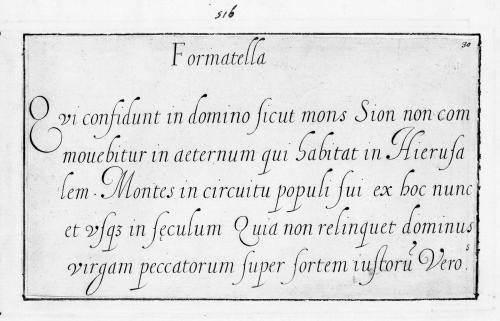 516
30
Formatella
Qvi confidunt in domino ſicut mons Sion non com
mouebitur in aeternum qui habitat in Hieruſa
lem. Montes in circuitu populi ſui ex hoc nunc
et vſqꝫ in ſęculum Quia non relinquet dominus
virgam peccatorum ſuper ſortem iuſtorũ Vero.s